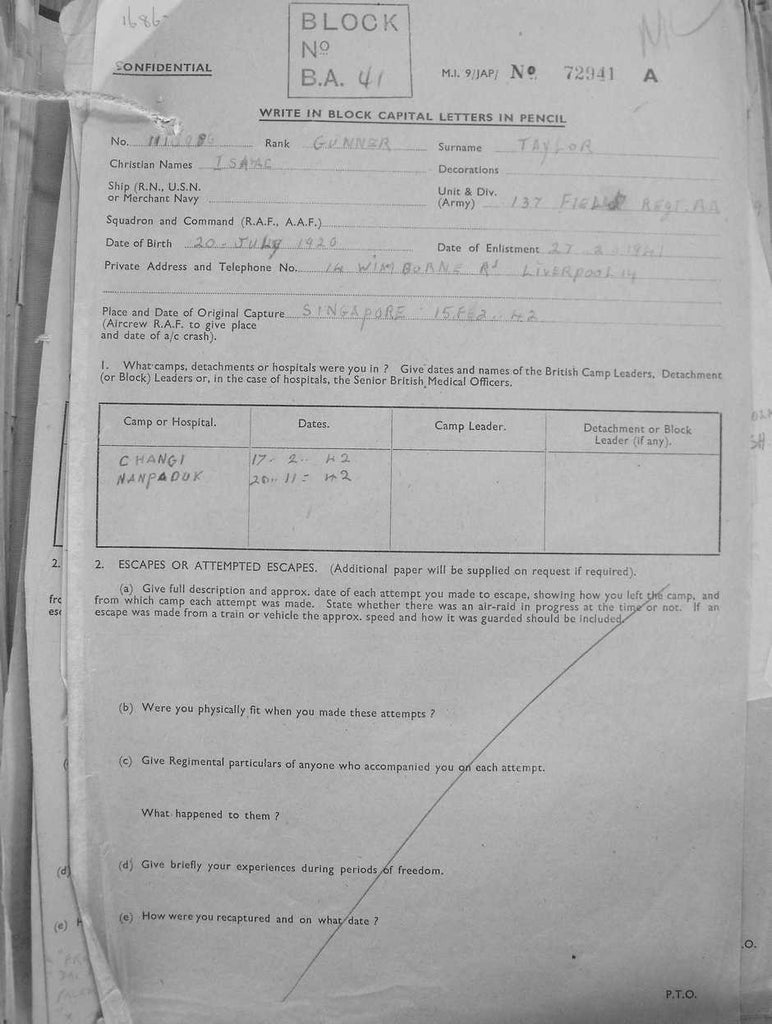 1686
BLOCK
Nº
B.A. 41
CONFIDENTIAL
M.I. 9/JAP/ Nº 72941 A
WRITE IN BLOCK CAPITAL LETTERS IN PENCIL
No. Rank GUNNER Surname TAYLOR
Christian Names ISAAC Decorations
Ship (R.N., U.S.N.
or Merchant Navy
Unit & Div.
(Army) 137 FIELD Regt. RA
Squadron and Command (R.A.F., A.A.F.)
Date of Birth 20 JULY 1920 Date of Enlistment 27 1941
Private Address and Telephone No. 14 WIMBORNE Rd LIVERPOOL 14
Place and Date of Original Capture SINGAPORE 15.FEB. 42
(Aircrew R.A.F. to give place
and date of a/c crash).
1. What camps, detachments or hospitals were you in ? Give dates and names of the British Camp Leaders, Detachment
(or Block) Leaders or, in the case of hospitals, the Senior British Medical Officers.
Camp or Hospital. Dates. Camp Leader. Detachment or Block
Leader (if any).
CHANGI 17. 2. 42
NANPADUK 20. 11. 42
2. ESCAPES OR ATTEMPTED ESCAPES. (Additional paper will be supplied on request if required).
(a) Give full description and approx. date of each attempt you made to escape, showing how you left the camp, and
from which camp each attempt was made. State whether there was an air-raid in progress at the time or not. If an
escape was made from a train or vehicle the approx. speed and how it was guarded should be included.
(b) Were you physically fit when you made these attempts ?
(c) Give Regimental particulars of anyone who accompanied you on each attempt.
What happened to them ?
(d) Give briefly your experiences during periods of freedom.
(e) How were you recaptured and on what date ?
P.T.O.
2.
(d)
(e)
.O.